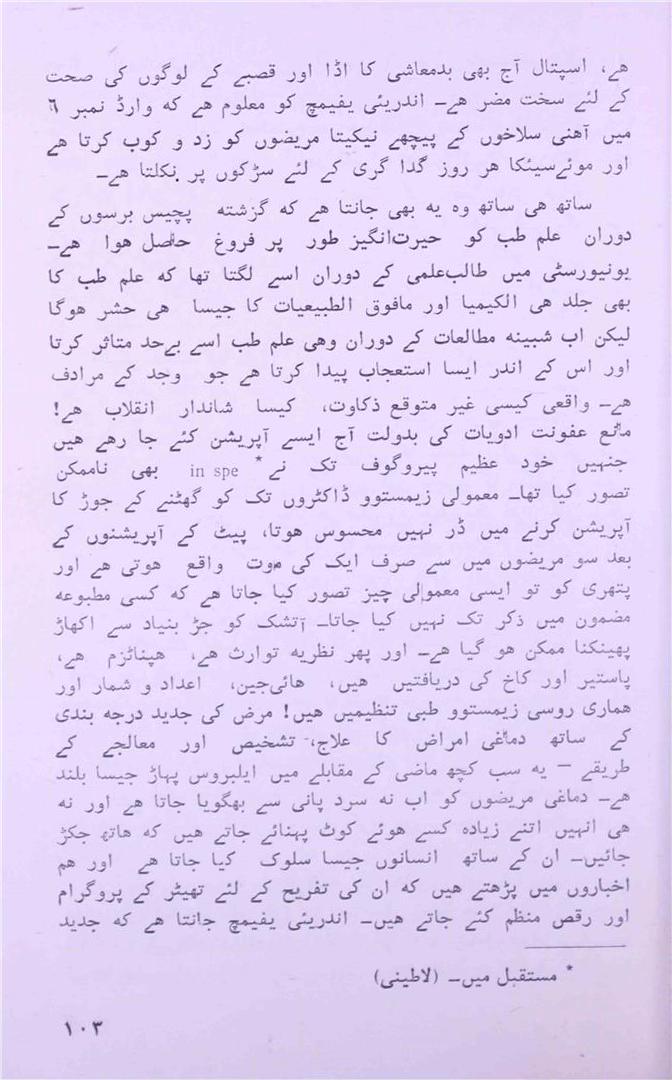 ھے، اسپتال آج بھی بدمعاشی کا اڈا اور قصبے کے لوگوں کی صحت
کے لئے سخت مضر ھے۔ اندریئی یفیمچ کو معلوم ھے کہ وارڈ نمبر ٦
میں آھنی سلاخوں کے پیچھے نیکیتا مریضوں کو زد و کوب کرتا ھے
اور موئےسیئکا ھر روز گدا گری کے لئے سڑکوں پر نکلتا ھے۔
ساتھ ھی ساتھ وہ یہ بھی جانتا ھے کہ گزشتہ پچیس برسوں کے
دوران علم طب کو حیرت‌انگیز طور پر فروغ حاصل ھوا ھے۔
یونیورسٹی میں طالب‌علمی کے دوران اسے لگتا تھا کہ علم طب کا
بھی جلد ھی الکیمیا اور مافوق الطبیعیات کا جیسا ھی حشر ھوگا
لیکن اب شبینہ مطالعات کے دوران وھی علم طب اسے بےحد متاثر کرتا
اور اس کے اندر ایسا استعجاب پیدا کرتا ھے جو وجد کے مرادف
ھے۔ واقعی کیسی غیر متوقع ذکاوت، کیسا شاندار انقلاب ھے!
مانع عفونت ادویات کی بدولت آج ایسے آپریشن کئے جا رھے ھیں
جنہیں خود عظیم پیروگوف تک نے* in spe بھی ناممکن
تصور کیا تھا۔ معمولی زیمستوو ڈاکٹروں تک کو گھٹنے کے جوڑ کا
آپریشن کرنے میں ڈر نہیں محسوس ھوتا، پیٹ کے آپریشنوں کے
بعد سو مریضوں میں سے صرف ایک کی موت واقع ھوتی ھے اور
پتھری کو تو ایسی معمولی چیز تصور کیا جاتا ھے کہ کسی مطبوعہ
مضمون میں ذکر تک نہیں کیا جاتا۔ آتشک کو جڑ بنیاد سے اکھاڑ
پھینکنا ممکن ھو گیا ھے۔ اور پھر نظریہ توارث ھے، ھپناٹزم ھے،
پاستیر اور کاخ کی دریافتیں ھیں، ھائی‌جین، اعداد و شمار اور
ھماری روسی زیمستوو طبی تنظیمیں ھیں! مرض کی جدید درجہ بندی
کے ساتھ دماغی امراض کا علاج، تشخیص اور معالجے کے
طریقے – یہ سب کچھ ماضی کے مقابلے میں ایلبروس پہاڑ جیسا بلند
ھے۔ دماغی مریضوں کو اب نہ سرد پانی سے بھگویا جاتا ھے اور نہ
ھی انہیں اتنے زیادہ کسے ھوئے کوٹ پہنائے جاتے ھیں کہ ھاتھ جکڑ
جائیں۔ ان کے ساتھ انسانوں جیسا سلوک کیا جاتا ھے اور ھم
اخباروں میں پڑھتے ھیں کہ ان کی تفریح کے لئے تھیٹر کے پروگرام
اور رقص منظم کئے جاتے ھیں۔ اندریئی یفیمچ جانتا ھے کہ جدید
* مستقبل میں۔ (لاطینی)
١٠٣